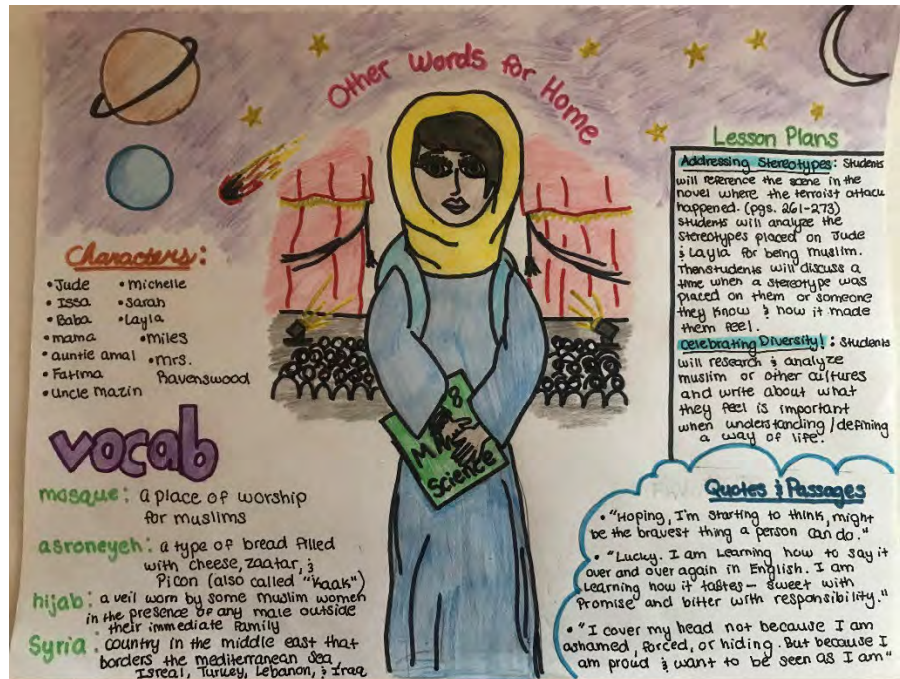 Other Words for Home
Characters:
• Jude
• Issa
• Baba
• mama
• auntie amal
• Fatima
• Uncle mazin
• michelle
• Sarah
• Layla
• miles
• mrs.
Ravenswood
vocab
mosque: a place of worship
for muslims
asroneyeh: a type of bread filled
with cheese, zaatar, &
Picon (also called "kaak")
hijab: a veil worn by some muslim women
in the presence of any male outside
their immediate family
Syria: country in the middle east that
borders the mediterranean sea
Isreal, Turkey, Lebanon, & Iraq
8
Science
Lesson Plans
Addressing Stereotypes: Students
will reference the scene in the
novel where the terroist attack
happened. (pgs. 261-273)
Students will analyze the
stereotypes placed on Jude
& Layla for being muslim.
Then students will discuss a
time when a stereotype was
placed on them or someone
they know & how it made
them feel.
Celebrating Diversity!: Students
will research & analyze
muslim or other cultures
and write about what
they feel is important
when understanding/defining
a way of life.
Quotes & Passages
• "Hoping, I'm starting to think, might
be the bravest thing a person can do."
• "Lucky. I am learning how to say it
over and over again in English. I am
learning how it tastes— sweet with
Promise and bitter with responsibility."
• "I cover my head not because I am
ashamed, forced, or hiding. But because I
am proud & want to be seen as I am"